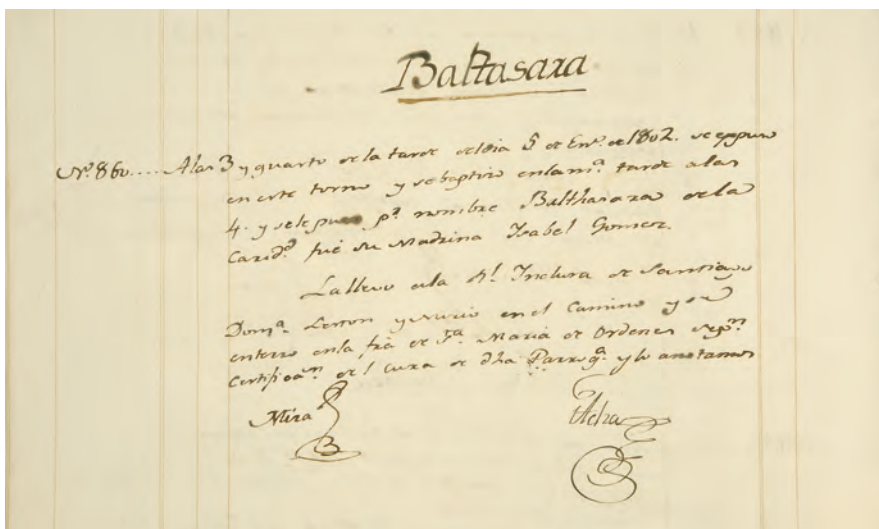 Baltasara
Nº. 860.... A las 3 y quarto de la tarde del dia 5 de En.º de 1802. se expuso
en este torno y se baptizo en la m.ª tarde a las
4. y se le puso p.r nombre Balthasara de la
Carid.d fué su Madrina Ysabel Gomez.
La llevo a la R.l Inclusa de Santiago
Dom.ª y murio en el Camino y se
enterro en la de S.ta Maria de Ordenes seg.n
Certificaz.n del Cura de dha Parroq.ª y lo anotamos
Mira